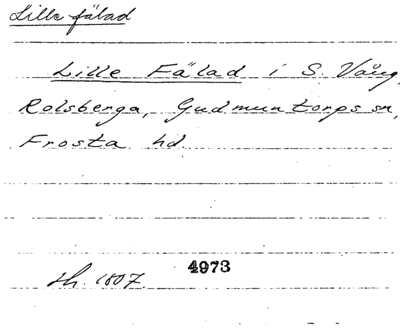 Lille fälad
Lille Fälad i S. Vång,
Rolsberga, Gudmuntorps sn,
Frosta hd
sh. 1807. 4973